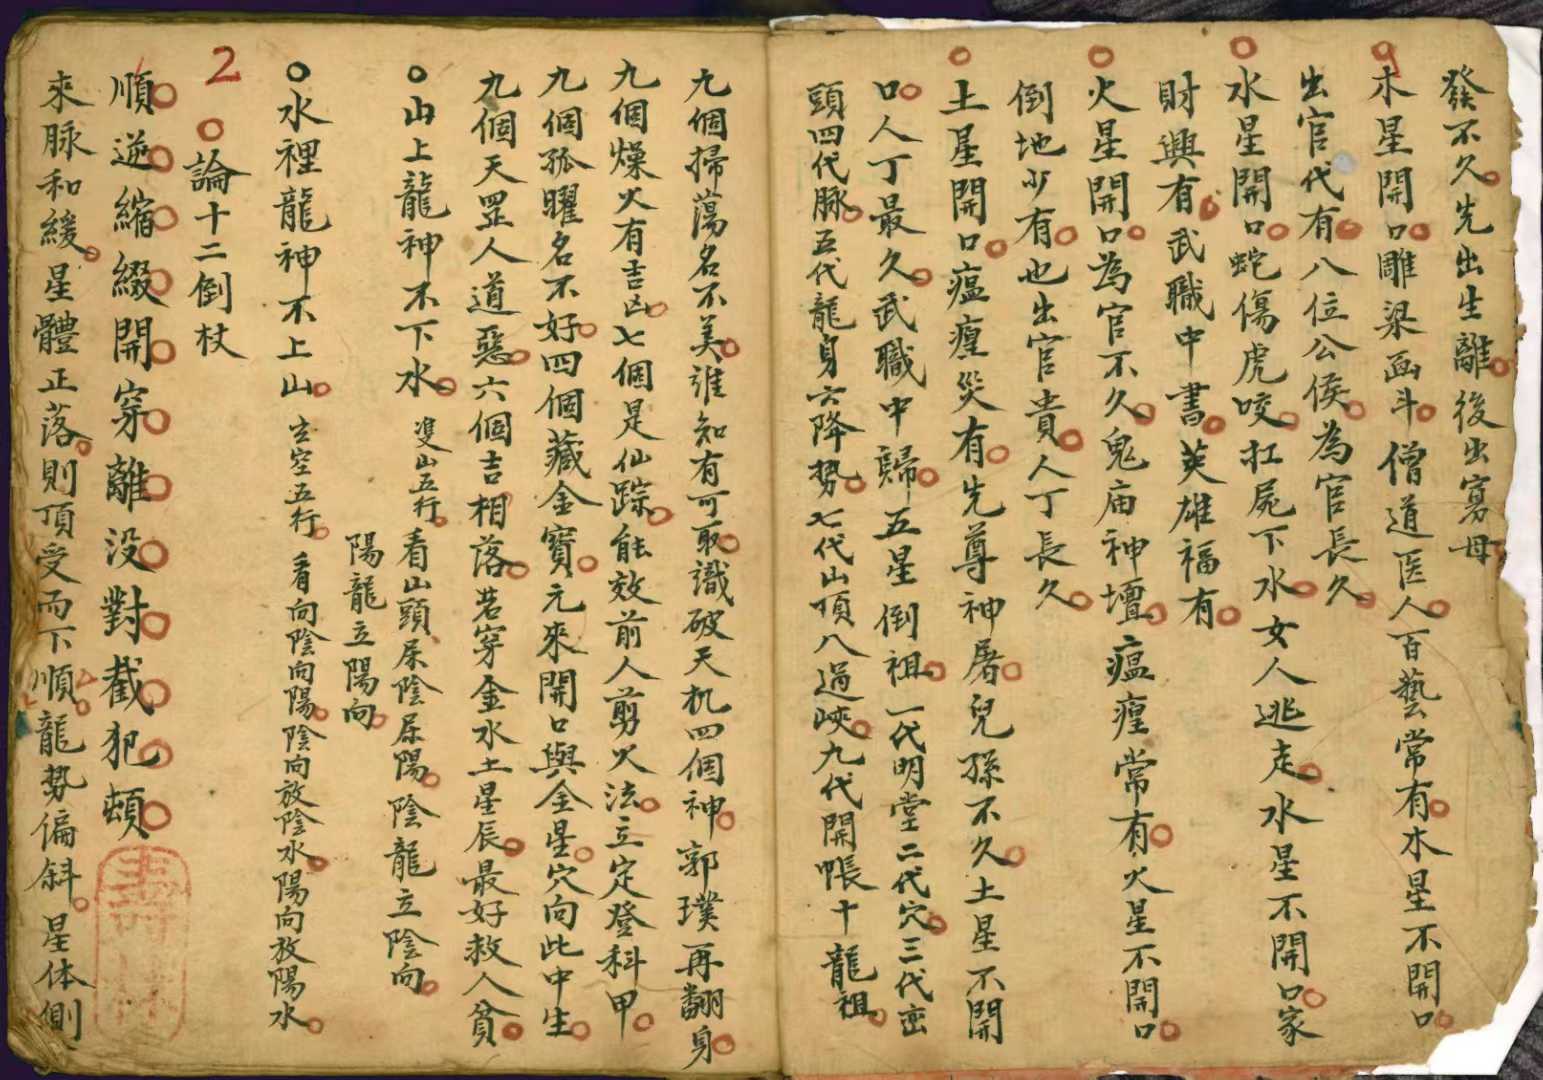 發不久先出生離後出寡母
木星開口雕梁画斗僧道医人百藝常有木星不開口
出官代有八位公侯為官長久
水星開口蛇傷虎咬扛屍下水女人逃走水星不開口家
財興有武職中書英雄福有
火星開口為官不久鬼庙神壇瘟瘟常有火星不開口
倒地少有也出官貴人丁長久
土星開口瘟瘟災有先尊神屠兒孫不久土星不開
口人丁最久武職中歸五星倒祖一代明堂二代穴三代峦
頭四代脉五代龍身六降势七代山頂八過峽九代開帳十龍祖
九個掃蕩名不美誰知有可取識破天机四個神郭璞再翻身
九個燥火有吉凶七個是仙踪能效前人剪火法立定登科甲
九個孤曜名不好四個藏金寶元來開口與金星穴向此中生
九個天罡人道惡六個吉相落若穿金水土星辰最好救人貧
山上龍神不下水 雙山五行看山頭屎陰屎陽陰龍立陰向
陽龍立陽向
水裡龍神不上山 玄空五行看向陰向陽陰向放陰水陽向放陽水
2
論十二倒杖
順逆縮綴開穿離没對截犯頓
來脉和緩星體正落則頂受而下順龍势偏斜星体側